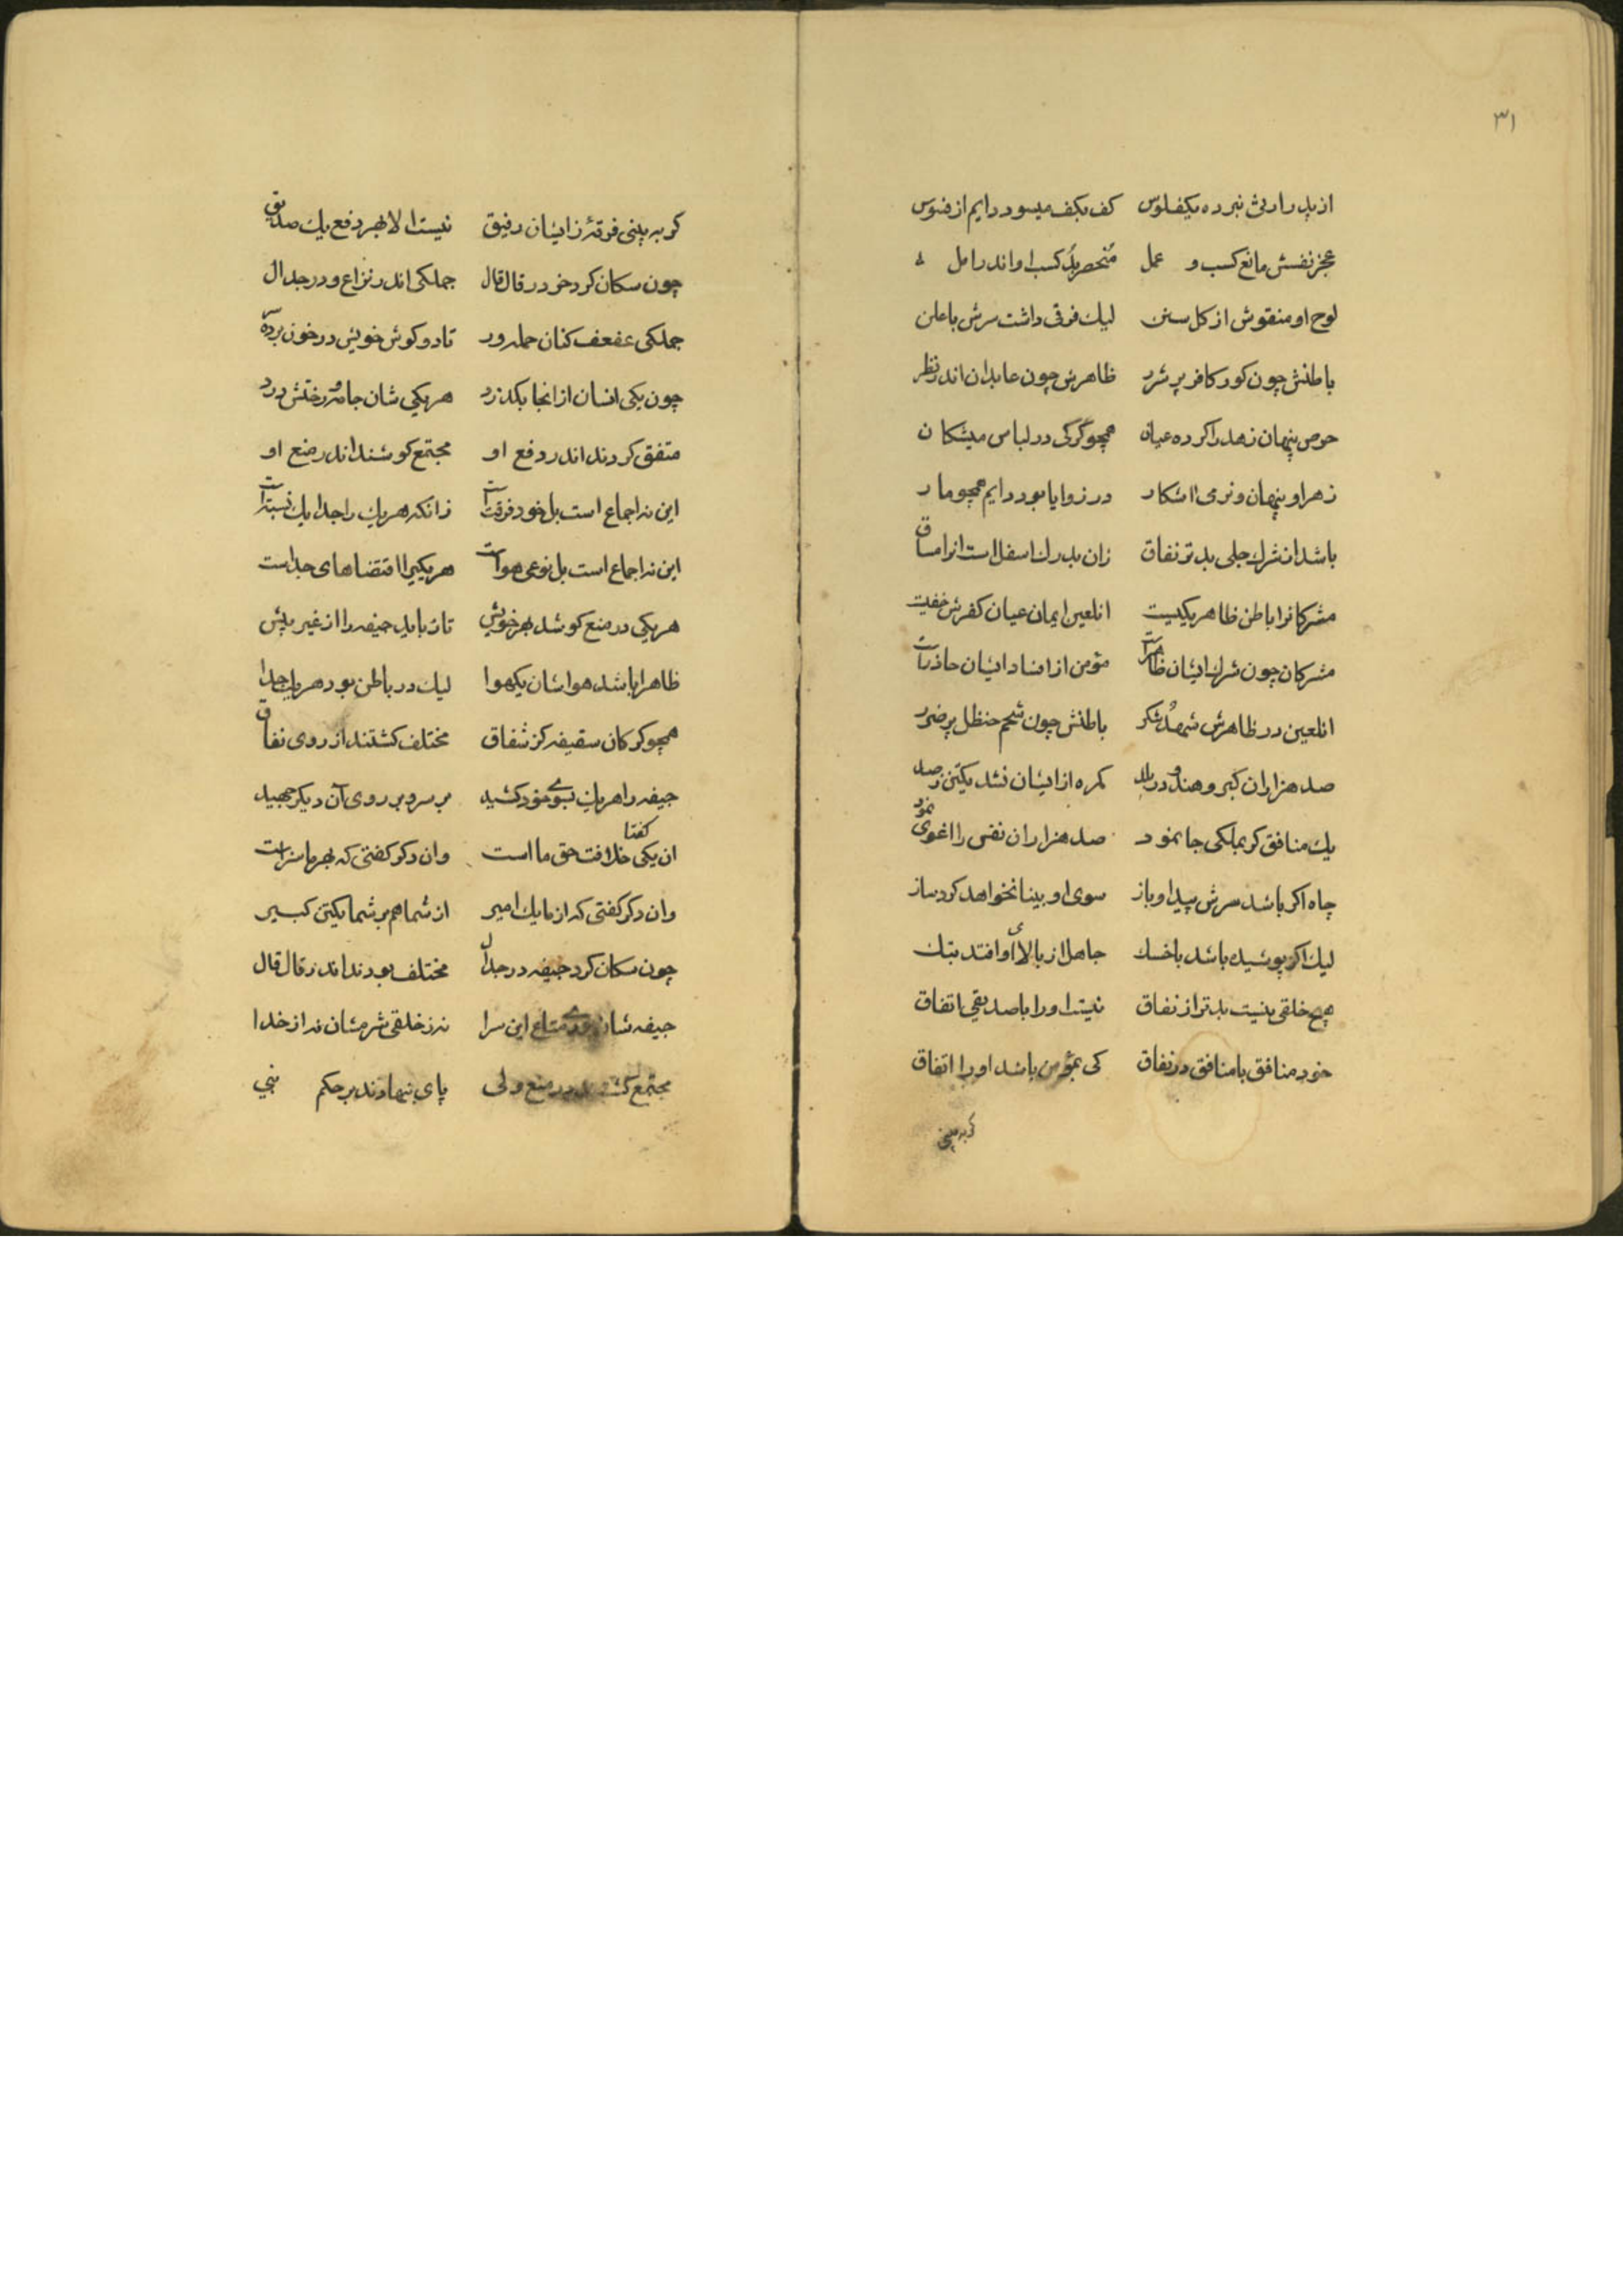 ۳۱
از پدر ارثی نبرده یکفلوس کف بکف میسود دایم از فسوس
عجز نفسش مانع کسب و عمل منحصر بد کسب او اندر امل
لوح او منقوش از کل سنن لیك فرقی داشت سرش با علن
باطنش چون کور کافر پر شرر ظاهرش چون عابدان اندر نظر
حرص پنهان زهد را کرده عیان همچو گرگی در لباس میشکان
زهر او پنهان و نرمی اشکار در زوایا بود دایم همچو مار
باشد از شرك جلی بدتر نفاق زان بدرك اسفل است انرا مساق
مشرکانرا باطن ظاهر یکیست انلعین ایمان عیان کفرش خفیست
مشرکان چون شرك ایشان ظاهر است مؤمن از افساد ایشان حاذر است
انلعین در ظاهرش شهد و شکر باطنش چون شحم حنظل پر ضرر
صد هزاران کبر و هند و در بلد کمره از ایشان نشد یکتن ز صد
یك منافق کر بملکی جا نمود صد هزاران نفس را اغوی نمود
چاه اکر باشد سرش پیدا و باز سوی او بینا نخواهد کرد ساز
لیك اکر پوشیده باشد با خسك جاهل از بالای او افتد بتك
هیچ خلقی نیست بدتر از نفاق نیست او را با صدیقی اتفاق
خود منافق با منافق در نفاق کی بمؤمن باشد او را اتفاق
کر به بینی
کر به بینی فرقهٔ زایشان رفیق نیست الا بهر دفع یك صدیق
چون سکان کرد خود در قال قال جملکی اندر نزاع و در جدال
جملکی عفعف کنان حمله ور تا دو کوش خویش در خون برده
چون یکی انسان از انجا بکذرد هر یکی شان جامه و رختش درد
متفق کردند اندر دفع او مجتمع کوشند اندر منع او
این نه اجماع است بل خود فرقت است زانکه هر یك را جدا یك نسبت است
این نه اجماع است بل نوعی هواست هر یکی را اقتضاهای جداست
هر یکی در منع کوشد بهر خویش تا رباید جیفه را از غیر پیش
ظاهرا باشد هواشان یکهوا لیك در باطن بود هر یك جدا
همچو کرکان سقیفه کز شفاق مختلف کشتند از روی نفاق
جیفه را هر یك بسوی خود کشید بر سر و بر روی آن دیکر جهید
ان یکی کفتا خلافت حق ما است وان دکر کفتی که بهر ما سزاست
وان دکر کفتی که از ما یك امیر از شما هم بر شما یکتن کبیر
چون سکان کرد جیفه در جدال مختلف بودند اندر قال قال
جیفه شان متاع این سرا نه ز خلقی شرمشان نه از خدا
مجتمع در منع ولی پای بنهادند بر حکم نبی